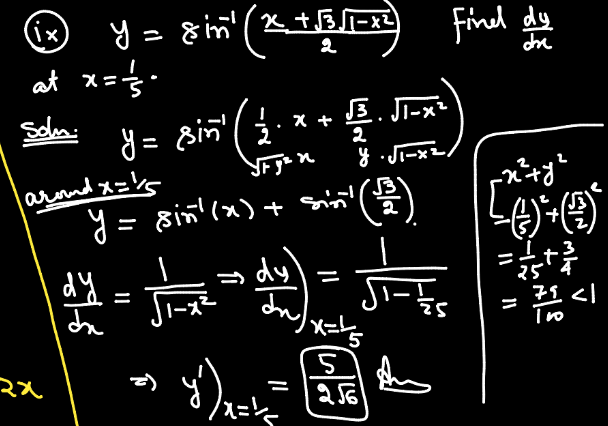 (ix) y = sin⁻¹((x + √3√(1-x²))/2) Find dy/dx
at x = 1/5.
Soln: y = sin⁻¹(1/2 · x + √3/2 · √(1-x²))
√(1-y²) x y · √(1-x²)
around x = 1/5
y = sin⁻¹(x) + sin⁻¹(√3/2).
dy/dx = 1/√(1-x²) ⇒ dy/dx)x=1/5 = 1/√(1-1/25)
⇒ y')x=1/5 = 5/2√6 Ans
x²+y²
=(1/5)²+(√3/2)²
= 1/25 + 3/4
= 79/100 < 1
2x